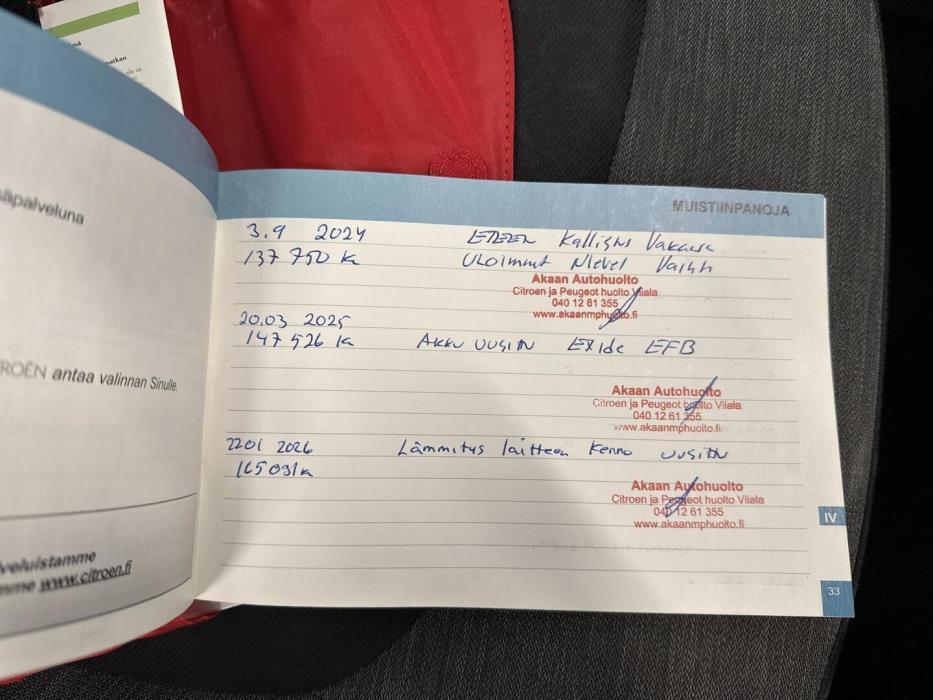 matkan
säpalveluna
ROËN antaa valinnan Sinulle.
veluistamme
mme www.citroen.fi
MUISTIINPANOJA
3.9 2024 ETEEN
137 750 K Uloimmat Nivel
Akaan Autohuolto
Citroen ja Peugeot huolto Viiala
040 12 61 355
www.akaanmphuolto.fi
20.03 2025
147 526 K AKKU UUSITTU EXIDE EFB
Akaan Autohuolto
Citroen ja Peugeot huolto Viiala
040 12 61 355
www.akaanmphuolto.fi
22.01 2026 Lämmitys laitteen Kenno uusittu
165 091 K
Akaan Autohuolto
Citroen ja Peugeot huolto Viiala
040 12 61 355
www.akaanmphuolto.fi
IV
33